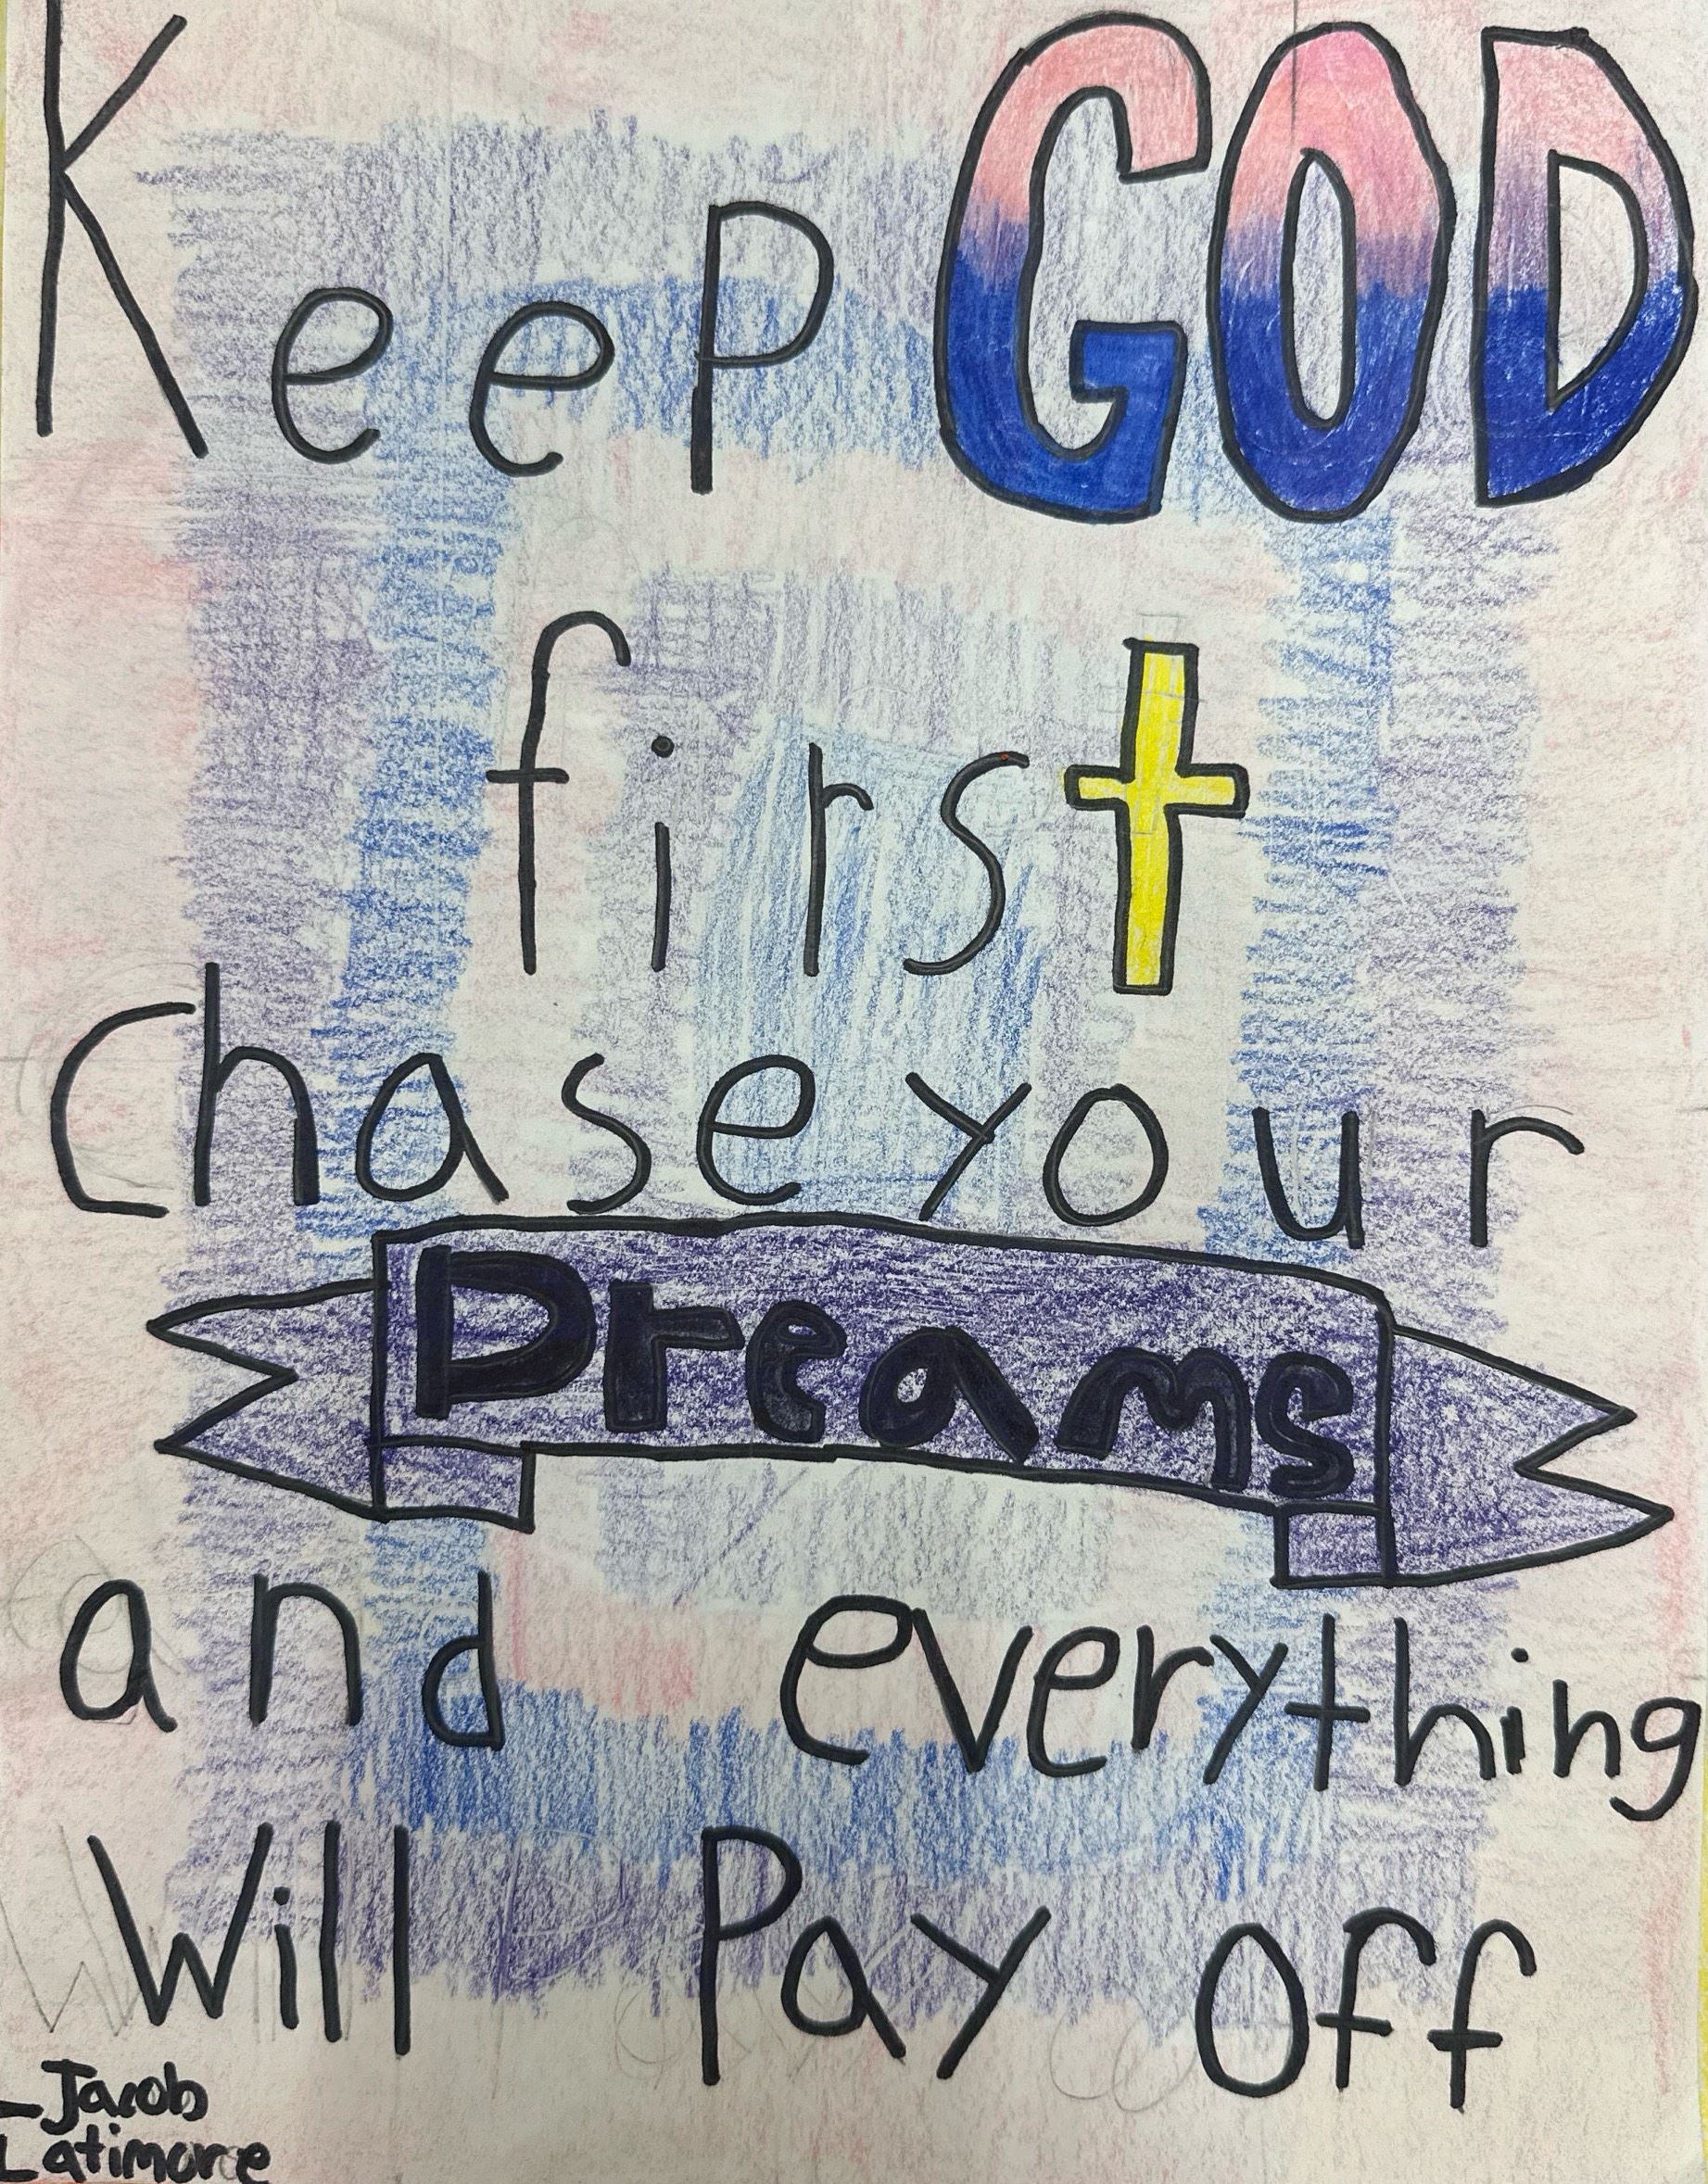 Keep GOD
first
Chase your
Dreams
and everything
Will Pay off
- Jacob
Latimore